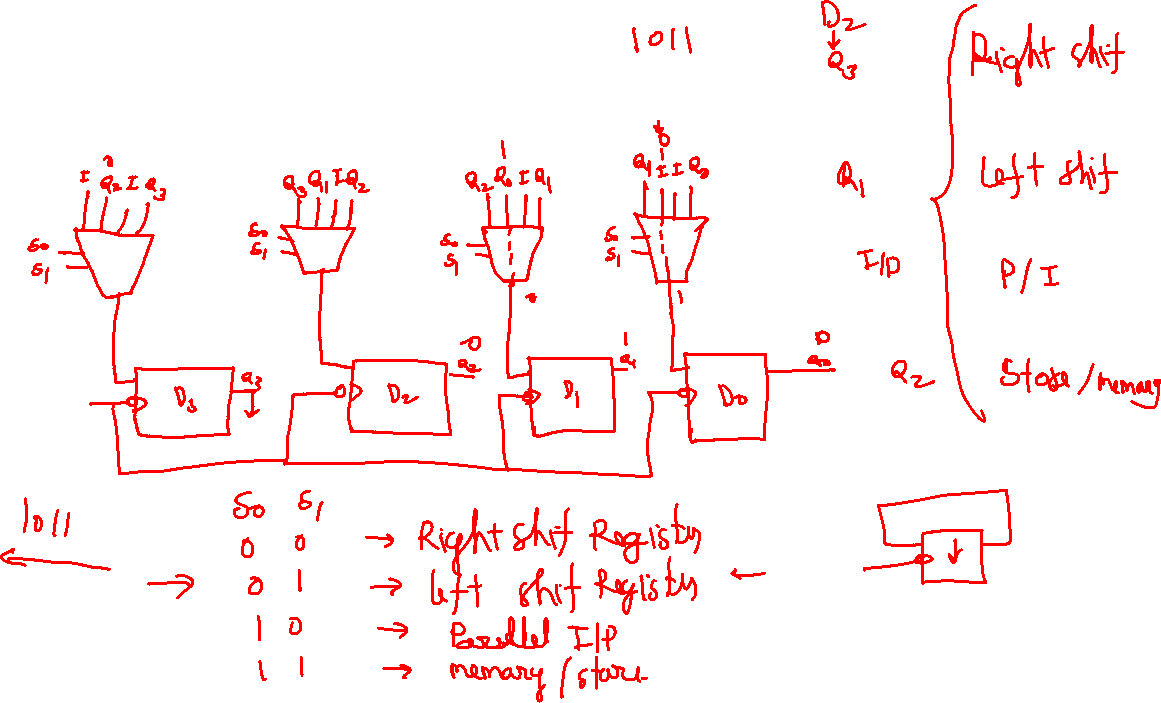 1011
D2
↓
Q3
Right shif
Q1
Left shif
I/P
P/I
Q2
Store/memary
I Q2 I Q3
S0
S1
Q3 Q1 I Q2
S0
S1
1
Q2 Q0 I Q1
S0
S1
0
1
Q1 I I Q0
S0
S1
1
D3
Q3
D2
Q2
0
D1
Q1
1
D0
Q0
0
1011
S0 S1
0 0 → Right shif Register
→ 0 1 → left shif Register ←
1 0 → Parallel I/P
1 1 → memary/store